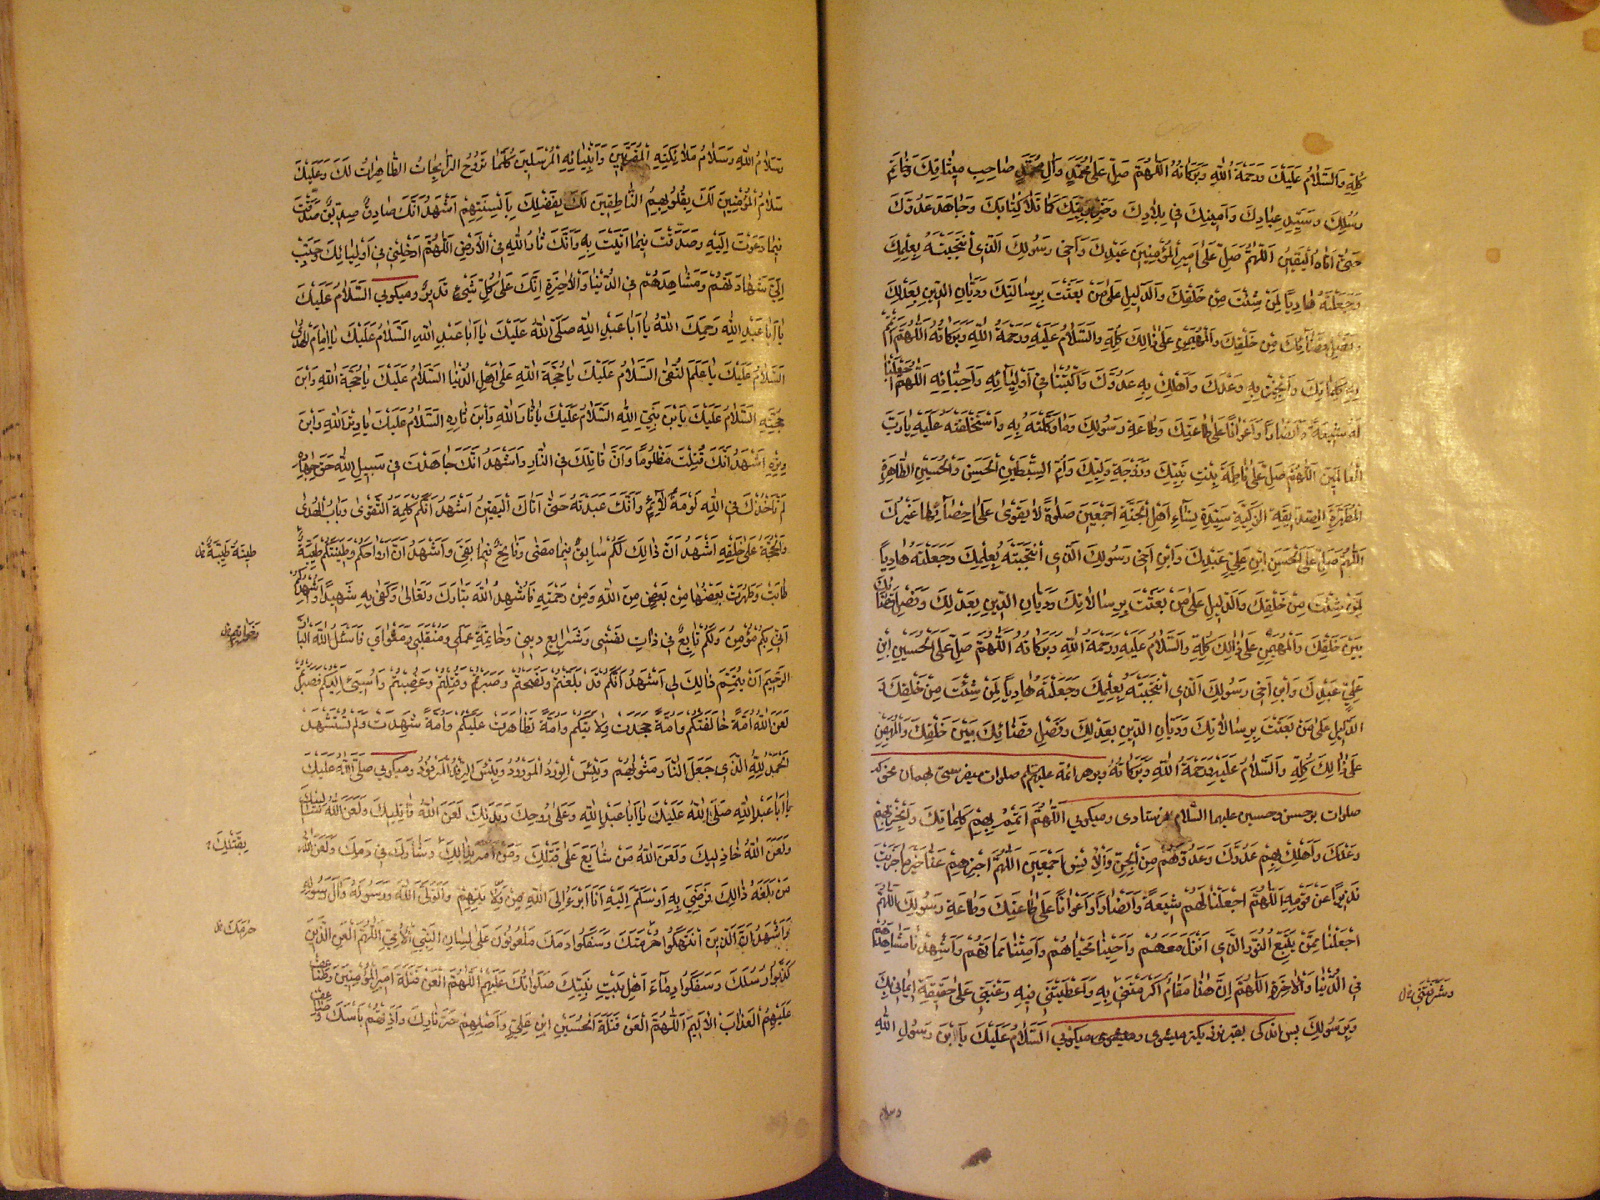 كُلِّهِ وَالسَّلَامُ عَلَيْكَ وَرَحْمَةُ اللهِ وَبَرَكَاتُهُ اَللّٰهُمَّ صَلِّ عَلٰى مُحَمَّدٍ وَآلِ مُحَمَّدٍ صَاحِبِ مِيثَاقِكَ وَخَاتَمِ
رُسُلِكَ وَسَيِّدِ عِبَادِكَ وَاَمِينِكَ فِي بِلَادِكَ كَمَا تَلَا كِتَابَكَ وَجَاهَدَ عَدُوَّكَ
حَتّٰى اَتَاهُ الْيَقِينُ اَللّٰهُمَّ صَلِّ عَلٰى اَمِيرِ الْمُؤْمِنِينَ عَبْدِكَ وَاَخِي رَسُولِكَ الَّذِي انْتَجَبْتَهُ بِعِلْمِكَ
وَجَعَلْتَهُ هَادِيًا لِمَنْ شِئْتَ مِنْ خَلْقِكَ وَالدَّلِيلِ عَلٰى مَنْ بَعَثْتَ بِرِسَالَتِكَ وَدَيَّانِ الدِّينِ بِعَدْلِكَ
وَفَصْلِ قَضَائِكَ مِنْ خَلْقِكَ وَالْمُهَيْمِنِ عَلٰى ذٰلِكَ كُلِّهِ وَالسَّلَامُ عَلَيْهِ وَرَحْمَةُ اللهِ وَبَرَكَاتُهُ اَللّٰهُمَّ اَتْمِمْ
بِهِ كَلِمَاتِكَ وَاَنْجِزْ بِهِ وَعْدَكَ وَاَهْلِكْ بِهِ عَدُوَّكَ وَاكْتُبْنَا فِي اَوْلِيَائِهِ وَاَحِبَّائِهِ اَللّٰهُمَّ اجْعَلْنَا
لَهُ شِيعَةً وَاَنْصَارًا وَاَعْوَانًا عَلٰى طَاعَتِكَ وَطَاعَةِ رَسُولِكَ وَمَا وَكَّلْتَهُ بِهِ وَاسْتَخْلَفْتَهُ عَلَيْهِ يَا رَبَّ
الْعَالَمِينَ اَللّٰهُمَّ صَلِّ عَلٰى فَاطِمَةَ بِنْتِ نَبِيِّكَ وَزَوْجَةِ وَلِيِّكَ وَاُمِّ السِّبْطَيْنِ الْحَسَنِ وَالْحُسَيْنِ الطَّاهِرَةِ
الْمُطَهَّرَةِ الصِّدِّيقَةِ الزَّكِيَّةِ سَيِّدَةِ نِسَاءِ اَهْلِ الْجَنَّةِ اَجْمَعِينَ صَلٰوةً لَا يَقْوٰى عَلٰى اِحْصَائِهَا غَيْرُكَ
اَللّٰهُمَّ صَلِّ عَلَى الْحَسَنِ ابْنِ عَلِيٍّ عَبْدِكَ وَابْنِ اَخِي رَسُولِكَ الَّذِي انْتَجَبْتَهُ بِعِلْمِكَ وَجَعَلْتَهُ هَادِيًا
لِمَنْ شِئْتَ مِنْ خَلْقِكَ وَالدَّلِيلِ عَلٰى مَنْ بَعَثْتَ بِرِسَالَاتِكَ وَدَيَّانِ الدِّينِ بِعَدْلِكَ وَفَصْلِ قَضَائِكَ
بَيْنَ خَلْقِكَ وَالْمُهَيْمِنِ عَلٰى ذٰلِكَ كُلِّهِ وَالسَّلَامُ عَلَيْهِ وَرَحْمَةُ اللهِ وَبَرَكَاتُهُ اَللّٰهُمَّ صَلِّ عَلَى الْحُسَيْنِ ابْنِ
عَلِيٍّ عَبْدِكَ وَابْنِ اَخِي رَسُولِكَ الَّذِي انْتَجَبْتَهُ بِعِلْمِكَ وَجَعَلْتَهُ هَادِيًا لِمَنْ شِئْتَ مِنْ خَلْقِكَ وَ
الدَّلِيلِ عَلٰى مَنْ بَعَثْتَ بِرِسَالَاتِكَ وَدَيَّانِ الدِّينِ بِعَدْلِكَ وَفَصْلِ قَضَائِكَ بَيْنَ خَلْقِكَ وَالْمُهَيْمِنِ
عَلٰى ذٰلِكَ كُلِّهِ وَالسَّلَامُ عَلَيْهِ وَرَحْمَةُ اللهِ وَبَرَكَاتُهُ و بر هر ائمه صلوات ميفرستى بهمان نحو كه
صلوات بر حسن و حسين عليهما السّلام فرستادى و ميكوئي اَللّٰهُمَّ اَتْمِمْ بِهِمْ كَلِمَاتِكَ وَاَنْجِزْ بِهِمْ
وَعْدَكَ وَاَهْلِكْ بِهِمْ عَدُوَّكَ وَعَدُوَّهُمْ مِنَ الْجِنِّ وَالْاِنْسِ اَجْمَعِينَ اَللّٰهُمَّ اجْزِهِمْ عَنَّا خَيْرَ مَا جَزَيْتَ
نَذِيرًا عَنْ قَوْمِهِ اَللّٰهُمَّ اجْعَلْنَا لَهُمْ شِيعَةً وَاَنْصَارًا وَاَعْوَانًا عَلٰى طَاعَتِكَ وَطَاعَةِ رَسُولِكَ اَللّٰهُمَّ
اجْعَلْنَا مِمَّنْ يَتَّبِعُ النُّورَ الَّذِي اُنْزِلَ مَعَهُمْ وَاَحْيِنَا مَحْيَاهُمْ وَاَمِتْنَا مَمَاتَهُمْ وَاَشْهِدْنَا مَشَاهِدَهُمْ
فِي الدُّنْيَا وَالْاٰخِرَةِ اَللّٰهُمَّ اِنَّ هٰذَا مَقَامٌ اَكْرَمْتَنِي بِهِ وَاَعْطَيْتَنِي فِيهِ رَغْبَتِي عَلٰى حَقِيقَةِ اِيمَانِي بِكَ
وَشَرَّفْتَنِي
وَبِرَسُولِكَ پس اندكى بقبر نزديكتر ميشوى و ميكوئي اَلسَّلَامُ عَلَيْكَ يَا ابْنَ رَسُولِ اللهِ
وسلام
وَسَلَامُ اللهِ وَسَلَامُ مَلَائِكَتِهِ الْمُقَرَّبِينَ وَاَنْبِيَائِهِ الْمُرْسَلِينَ كُلَّمَا تَرُوحُ الرَّائِحَاتُ الطَّاهِرَاتُ لَكَ وَعَلَيْكَ
سَلَامُ الْمُؤْمِنِينَ لَكَ بِقُلُوبِهِمْ النَّاطِقِينَ لَكَ بِفَضْلِكَ بِاَلْسِنَتِهِمْ اَشْهَدُ اَنَّكَ صَادِقٌ صِدِّيقٌ صَدَقْتَ
فِيمَا دَعَوْتَ اِلَيْهِ وَصَدَقْتَ فِيمَا اَتَيْتَ بِهِ وَاَنَّكَ ثَارُ اللهِ فِي الْاَرْضِ اَللّٰهُمَّ اَدْخِلْنِي فِي اَوْلِيَائِكَ وَحَبِّبْ
اِلَيَّ شَهَادَتَهُمْ وَمَشَاهِدَهُمْ فِي الدُّنْيَا وَالْاٰخِرَةِ اِنَّكَ عَلٰى كُلِّ شَيْءٍ قَدِيرٌ وميكوئي اَلسَّلَامُ عَلَيْكَ
يَا اَبَا عَبْدِ اللهِ رَحِمَكَ اللهُ يَا اَبَا عَبْدِ اللهِ صَلَّى اللهُ عَلَيْكَ يَا اَبَا عَبْدِ اللهِ اَلسَّلَامُ عَلَيْكَ يَا اِمَامَ الْهُدٰى
اَلسَّلَامُ عَلَيْكَ يَا عَلَمَ التُّقٰى اَلسَّلَامُ عَلَيْكَ يَا حُجَّةَ اللهِ عَلٰى اَهْلِ الدُّنْيَا اَلسَّلَامُ عَلَيْكَ يَا حُجَّةَ اللهِ وَابْنَ
حُجَّتِهِ اَلسَّلَامُ عَلَيْكَ يَا بْنَ نَبِيِّ اللهِ اَلسَّلَامُ عَلَيْكَ يَا ثَارَ اللهِ وَابْنَ ثَارِهِ اَلسَّلَامُ عَلَيْكَ يَا وِتْرَ اللهِ وَابْنَ
وِتْرِهِ اَشْهَدُ اَنَّكَ قُتِلْتَ مَظْلُومًا وَاَنَّ قَاتِلَكَ فِي النَّارِ وَاَشْهَدُ اَنَّكَ جَاهَدْتَ فِي سَبِيلِ اللهِ حَقَّ جِهَادِهِ
لَمْ تَأْخُذْكَ فِي اللهِ لَوْمَةُ لَائِمٍ وَاَنَّكَ عَبَدْتَهُ حَتّٰى اَتَاكَ الْيَقِينُ اَشْهَدُ اَنَّكُمْ كَلِمَةُ التَّقْوٰى وَبَابُ الْهُدٰى
وَالْحُجَّةُ عَلٰى خَلْقِهِ اَشْهَدُ اَنَّ ذٰلِكَ لَكُمْ سَابِقٌ فِيمَا مَضٰى وَفَاتِحٌ فِيمَا بَقِيَ وَاَشْهَدُ اَنَّ اَرْوَاحَكُمْ وَطِينَتَكُمْ طَيِّبَةٌ
طِينَةٌ طَيِّبَةٌ
طَابَتْ وَطَهُرَتْ بَعْضُهَا مِنْ بَعْضٍ مِنَ اللهِ وَمِنْ رَحْمَتِهِ فَاُشْهِدُ اللهَ تَبَارَكَ وَتَعَالٰى وَكَفٰى بِهِ شَهِيدًا وَاُشْهِدُكُمْ
اَنِّي بِكُمْ مُؤْمِنٌ وَلَكُمْ تَابِعٌ فِي ذَاتِ نَفْسِي وَشَرَايِعِ دِينِي وَخَاتِمَةِ عَمَلِي وَمُنْقَلَبِي وَمَثْوَايَ فَاَسْئَلُ اللهَ الْبَرَّ
الرَّحِيمَ اَنْ يُتَمِّمَ ذٰلِكَ لِي اَشْهَدُ اَنَّكُمْ قَدْ بَلَّغْتُمْ وَنَصَحْتُمْ وَصَبَرْتُمْ وَقُتِلْتُمْ وَغُصِبْتُمْ وَاُسِيءَ اِلَيْكُمْ فَصَبَرْتُمْ
لَعَنَ اللهُ اُمَّةً خَالَفَتْكُمْ وَاُمَّةً جَحَدَتْ وِلَايَتَكُمْ وَاُمَّةً تَظَاهَرَتْ عَلَيْكُمْ وَاُمَّةً شَهِدَتْ وَلَمْ تُسْتَشْهَدْ
اَلْحَمْدُ لِلّٰهِ الَّذِي جَعَلَ النَّارَ مَثْوٰيهُمْ وَبِئْسَ الْوِرْدُ الْمَوْرُودُ وَبِئْسَ الرِّفْدُ الْمَرْفُودُ وميكوئي صَلَّى اللهُ عَلَيْكَ
يَا اَبَا عَبْدِ اللهِ صَلَّى اللهُ عَلَيْكَ يَا اَبَا عَبْدِ اللهِ وَعَلٰى رُوحِكَ وَبَدَنِكَ لَعَنَ اللهُ قَاتِلِيكَ وَلَعَنَ اللهُ سَالِبِيكَ
وَلَعَنَ اللهُ خَاذِلِيكَ وَلَعَنَ اللهُ مَنْ شَايَعَ عَلٰى قَتْلِكَ وَمَنْ اَمَرَ بِذٰلِكَ وَشَارَكَ فِي دَمِكَ وَلَعَنَ اللهُ
بِقَتْلِكَ
مَنْ بَلَغَهُ ذٰلِكَ فَرَضِيَ بِهِ اَوْ سَلَّمَ اِلَيْهِ اَنَا اَبْرَءُ اِلَى اللهِ مِنْ وَلَايَتِهِمْ وَاَتَوَلَّى اللهَ وَرَسُولَهُ وَاٰلَ رَسُولِهِ
وَاَشْهَدُ اَنَّ الَّذِينَ انْتَهَكُوا حُرْمَتَكَ وَسَفَكُوا دَمَكَ مَلْعُونُونَ عَلٰى لِسَانِ النَّبِيِّ الْاُمِّيِّ اَللّٰهُمَّ الْعَنِ الَّذِينَ
حُرَمَكَ
كَذَّبُوا رُسُلَكَ وَسَفَكُوا دِمَاءَ اَهْلِ بَيْتِ نَبِيِّكَ صَلَوَاتُكَ عَلَيْهِمْ اَللّٰهُمَّ الْعَنْ قَتَلَةَ اَمِيرِ الْمُؤْمِنِينَ وَضَاعِفْ
عَلَيْهِمُ الْعَذَابَ الْاَلِيمَ اَللّٰهُمَّ الْعَنْ قَتَلَةَ الْحُسَيْنِ ابْنِ عَلِيٍّ وَاَصْلِهِمْ حَرَّ نَارِكَ وَاَذِقْهُمْ بَأْسَكَ وَضَاعِفْ